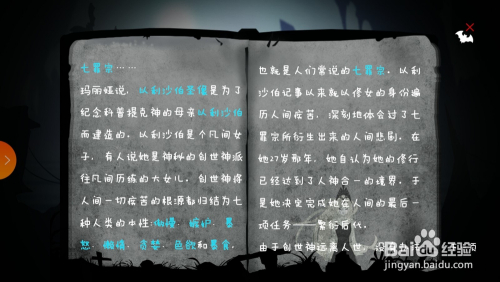 七罪宗……
玛丽娅说，以利沙伯圣堡是为了
纪念科普提克神的母亲以利沙伯
而建造的。以利沙伯是个凡间女
子，有人说她是神秘的创世神派
往凡间历练的大女儿。创世神将
人间一切疾苦的根源都归结为七
种人类的本性:傲慢、嫉妒、暴
怒、懒惰、贪婪、色欲和暴食，
也就是人们常说的七罪宗。以利
沙伯记事以来就以修女的身份遍
历人间疾苦，深刻地体会过了七
罪宗所衍生出来的人间悲剧。在
她27岁那年，她自认为她的修行
已经达到了人神合一的境界，于
是她决定完成她在人间的最后一
项任务——繁衍后代。
由于创世神远离人世，没
Baidu百度经验
jingyan.baidu.com